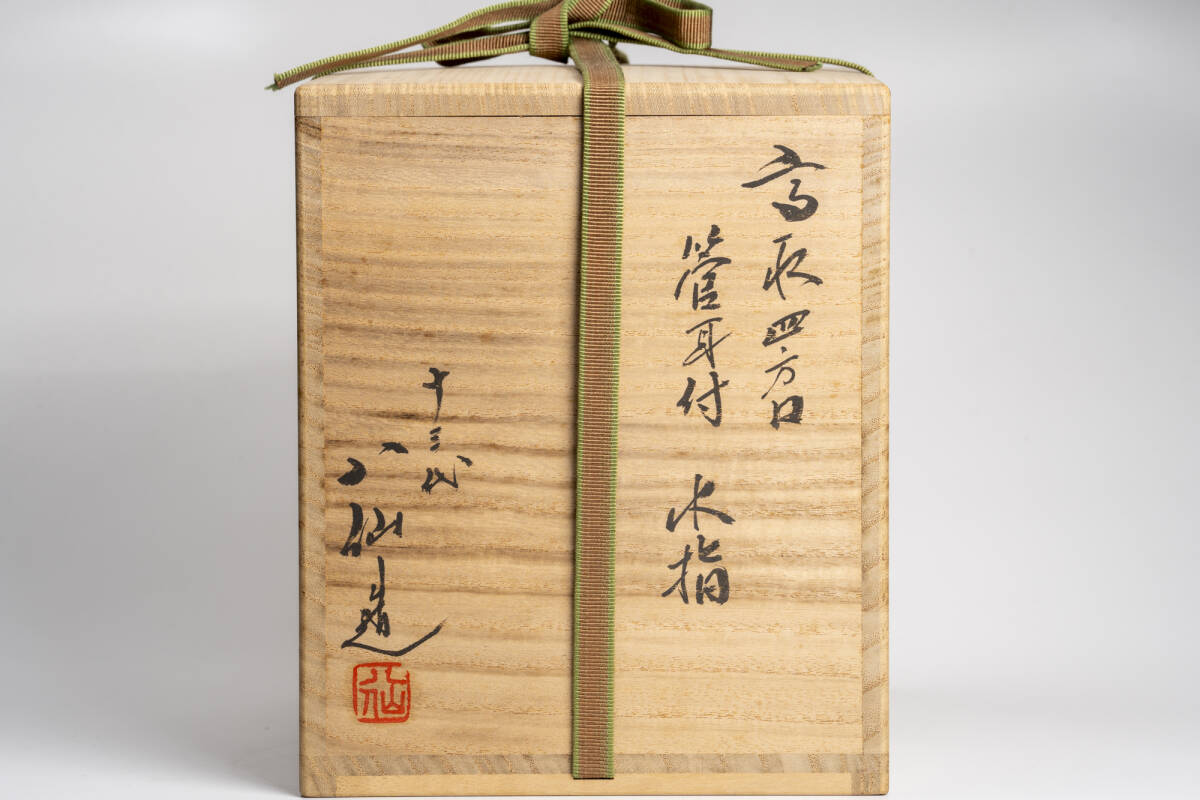 高取四方口
管耳付 水指
十三代
八仙造
八仙